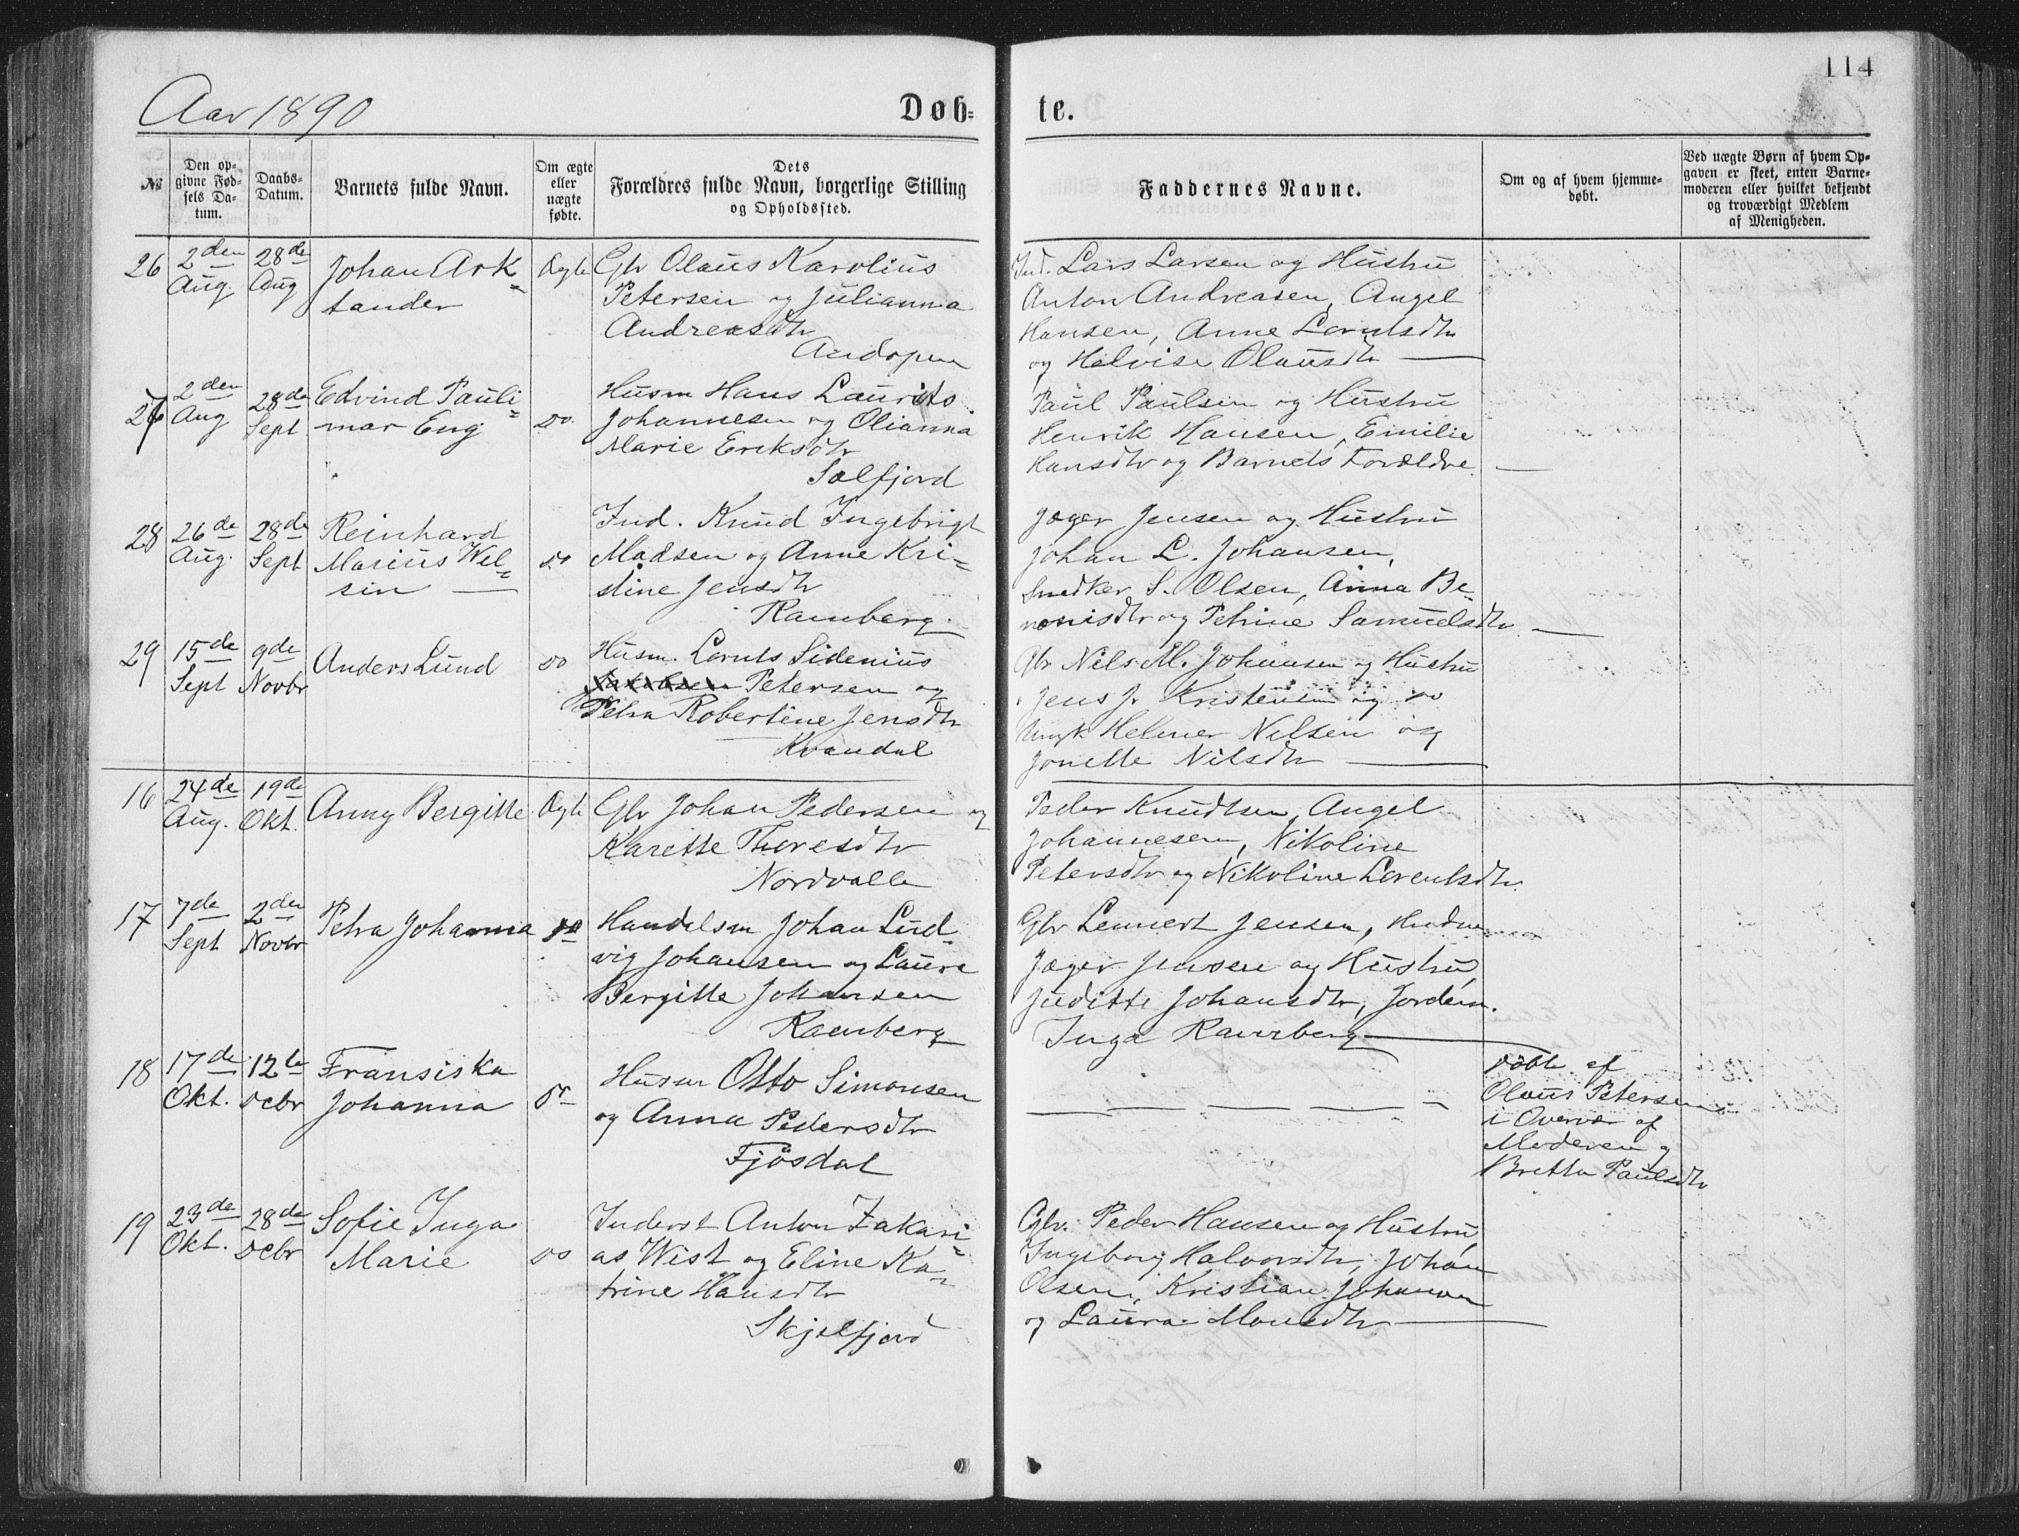 114
Aar 1890
Døb-
te.
№
Den op-
givne Fød-
sels Da-
tum.
Daabs-
Datum.
Barnets fulde Navn.
Om ægte
eller
uægte
fødte.
Dets
Forældres fulde Navn, borgerlige Stilling
og Opholdssted.
Faddernes Navne.
Om og af hvem hjemme-
døbt.
Ved uægte Børn af hvem Op-
gaven er skeet, enten Barne-
moderen eller hvilket bekjendt
og troværdigt Medlem
af Menigheden.
26
2den
Aug.
28de
Aug
Johan Ark-
tander
Ægte
Gbr Olaus Karolius
Petersen og Julianna
Andreasdtr
Andopen
Ind. Lars Larsen og Hustru
Anton Andreasen, Angel
Hansen, Anne Lorntsdtr
og Helvise Olausdtr
27
2den
Aug
28de
Sept
Edvind Pauli-
mar Eng
do.
Husm Hans Laurits
Johannesen og Olianna
Marie Eriksdtr
Sælfjord
Paul Paulsen og Hustru
Henrik Hansen, Emilie
Hansdtr og Barnets Forældre.
28
26de
Aug.
28de
Sept
Reinhard
Marius Wel-
sin
do
Ind. Knud Ingebrigt
Madsen og Anne Kri-
stine Jensdtr
Ramberg.
Jæger Jensen og Hustru
Johan L. Johansen,
Snedker S. Olsen, Anna Be-
nonisdtr og Petrine Samuelsdtr.
29
15de
Sept
9de
Novbr
Anders Lund
do
Husm. Lornts Sidenius
Petersen og
Petra Robertine Jensdtr
Kvandal
Gbr Nils M. Johansen og Hustru
Jens Jr Kristensen og do
Ungk Helmer Nilsen og
Jonette Nilsdtr
16
24de
Aug.
19de
Okt.
Anny Bergitte
Ægte
Gbr Johan Pedersen og
Karette Thoresdtr
Nordvalle
Peder Knudtsen, Angel
Johannesen, Nikoline
Petersdtr og Nikoline Lorentsdtr.
17
7de
Sept
2den
Novbr
Petra Johanna
do
Handelsm Johan Lud-
vig Johansen og Laura
Bergitte Johansen
Ramberg
Gbr Lennert Jensen,
Jæger Jensen og Hustru,
Juditte Johansdtr, Jordem.
Inga Ramberg
18
17de
Okt.
12te
Dcbr
Fransiska
Johanna
do
Husm Otto Simonsen
og Anna Pedersdtr
Fjøsdal
døbt af
Olaus Petersen
i Overvær af
Moderen og
Britta Paulsdtr
19
23de
Okt.
28de
Dcbr
Sofie Inga
Marie
do
Inderst Anton Zakari-
as Wist og Eline Ka-
trine Hansdtr
Skjelfjord
Gbr. Peder Hansen og Hustru,
Ingeborg Halvorsdtr, Johan
Olsen, Kristian Johansen
og Laura Monsdtr